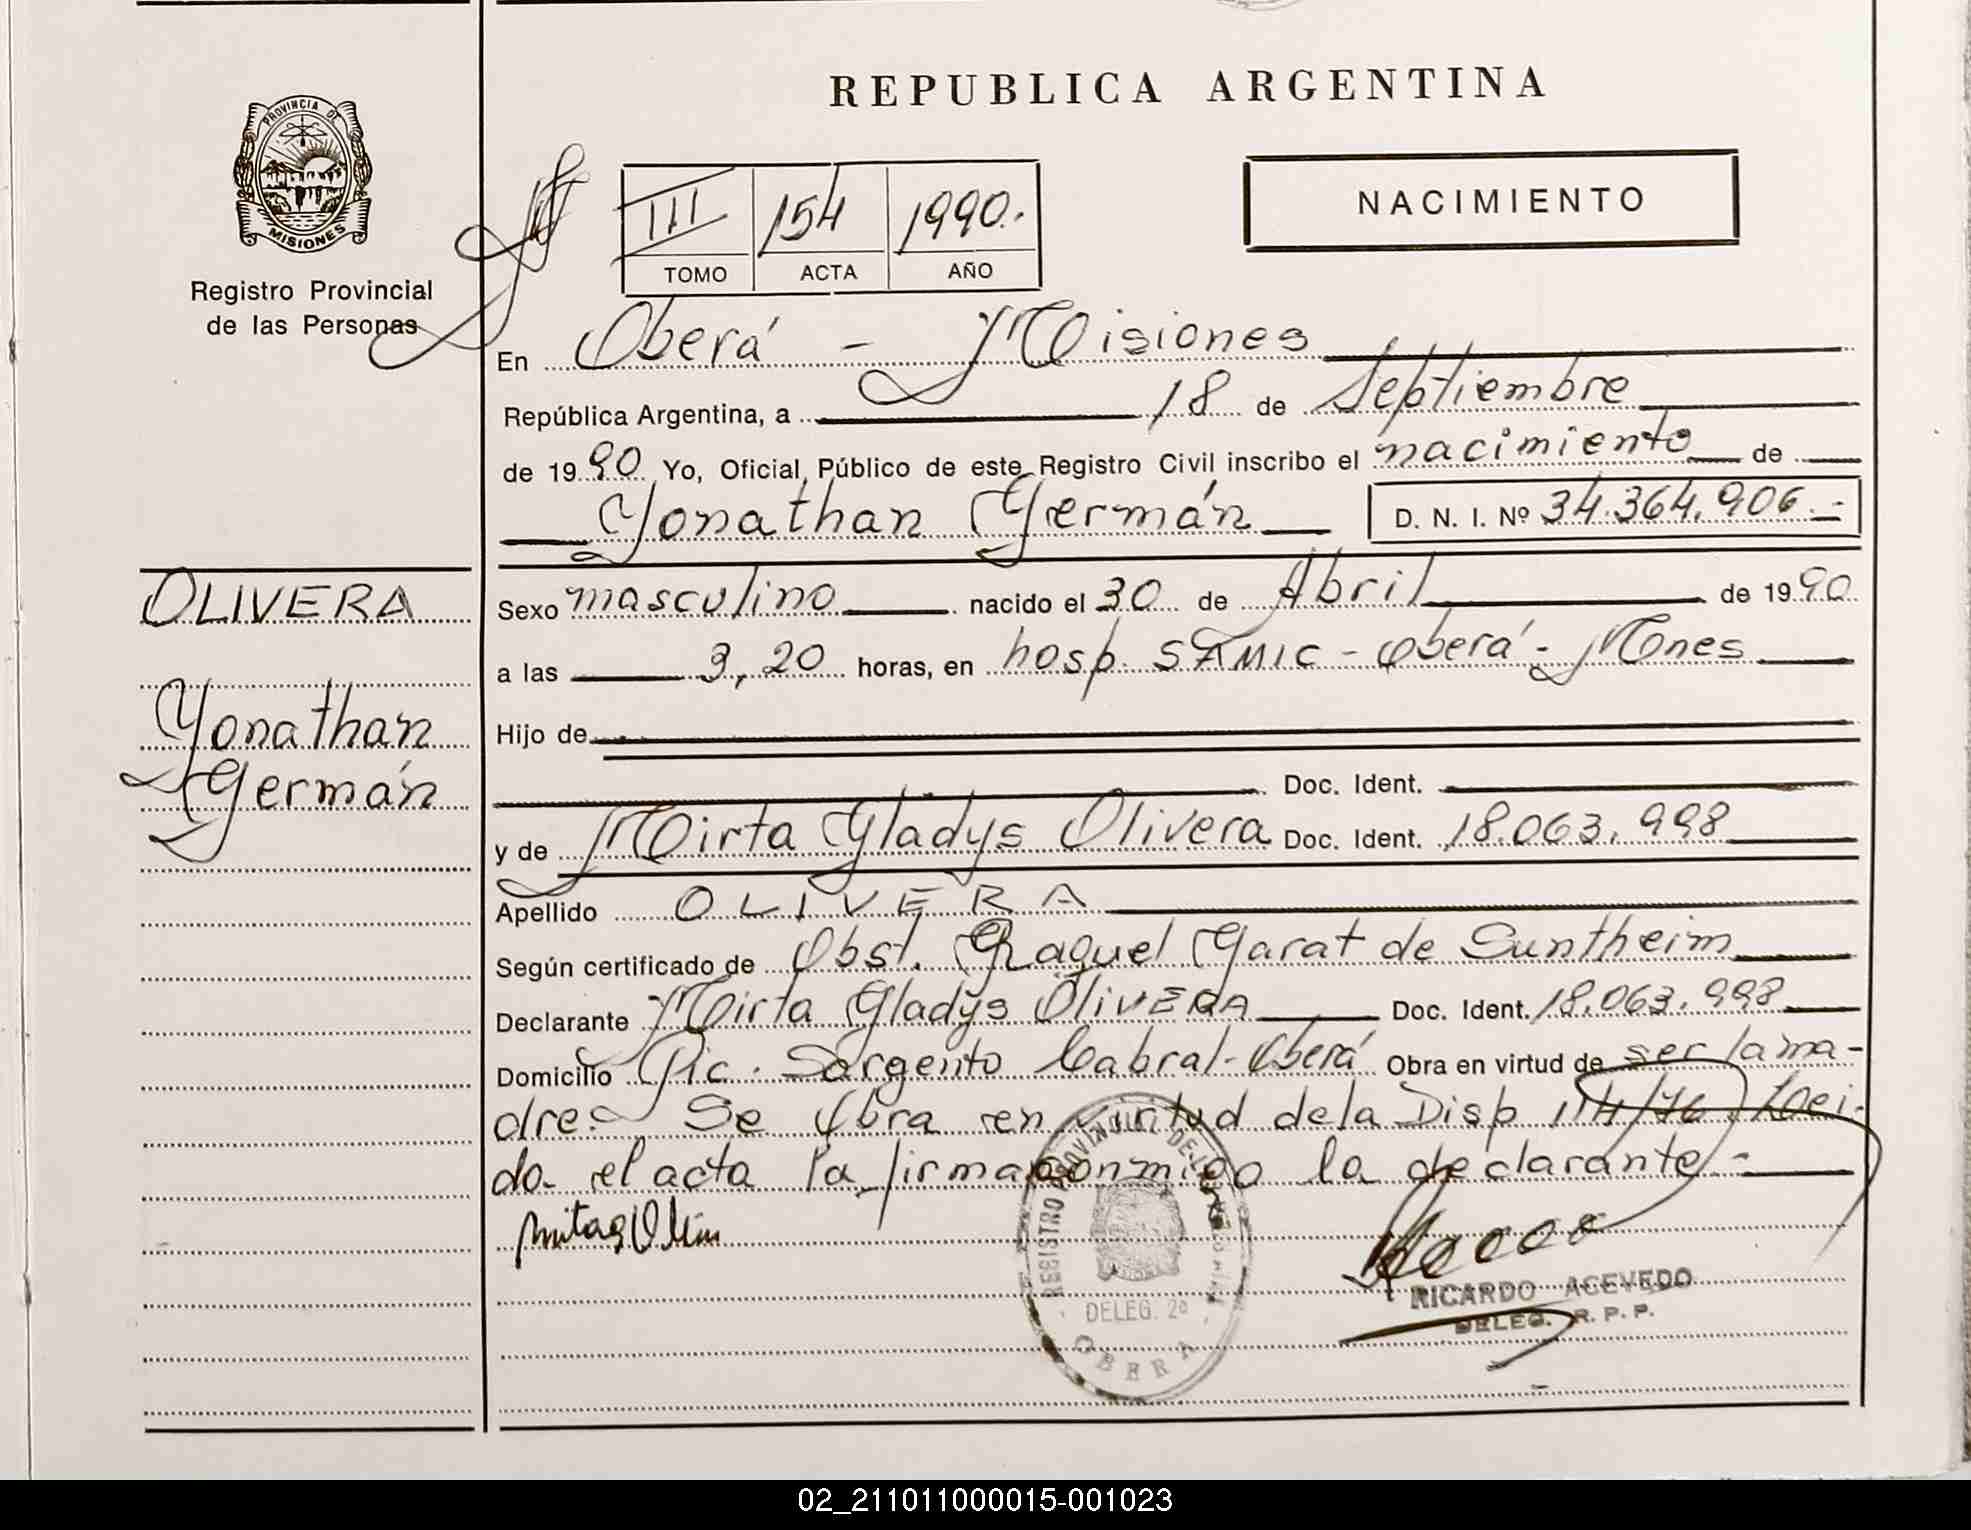 REPUBLICA ARGENTINA
PROVINCIA DE
MISIONES
Registro Provincial
de las Personas
III 154 1990.-
TOMO ACTA AÑO
NACIMIENTO
En Oberá - Misiones
República Argentina, a 18 de Septiembre
de 1990 Yo, Oficial Público de este Registro Civil inscribo el nacimiento de
Yonathan Germán D. N. I. Nº 34.364.906.-
OLIVERA
Yonathan
Germán
Sexo masculino nacido el 30 de Abril de 1990
a las 3,20 horas, en hosp. SAMIC - Oberá - Mnes
Hijo de
Doc. Ident.
y de Mirta Gladys Olivera Doc. Ident. 18.063.998
Apellido OLIVERA
Según certificado de Obst. Raquel Garat de Suntheim
Declarante Mirta Gladys OLIVERA Doc. Ident. 18.063.998
Domicilio Pic. Sargento Cabral - Oberá Obra en virtud de ser la ma-
dre. Se Obra en virtud de la Disp 114/76. Leí-
da el acta la firma conmigo la declarante.-
REGISTRO PROVINCIAL DE LAS PERSONAS
DELEG. 2ª
OBERA
RICARDO ACEVEDO
DELEG. R. P. P.
02_211011000015-001023